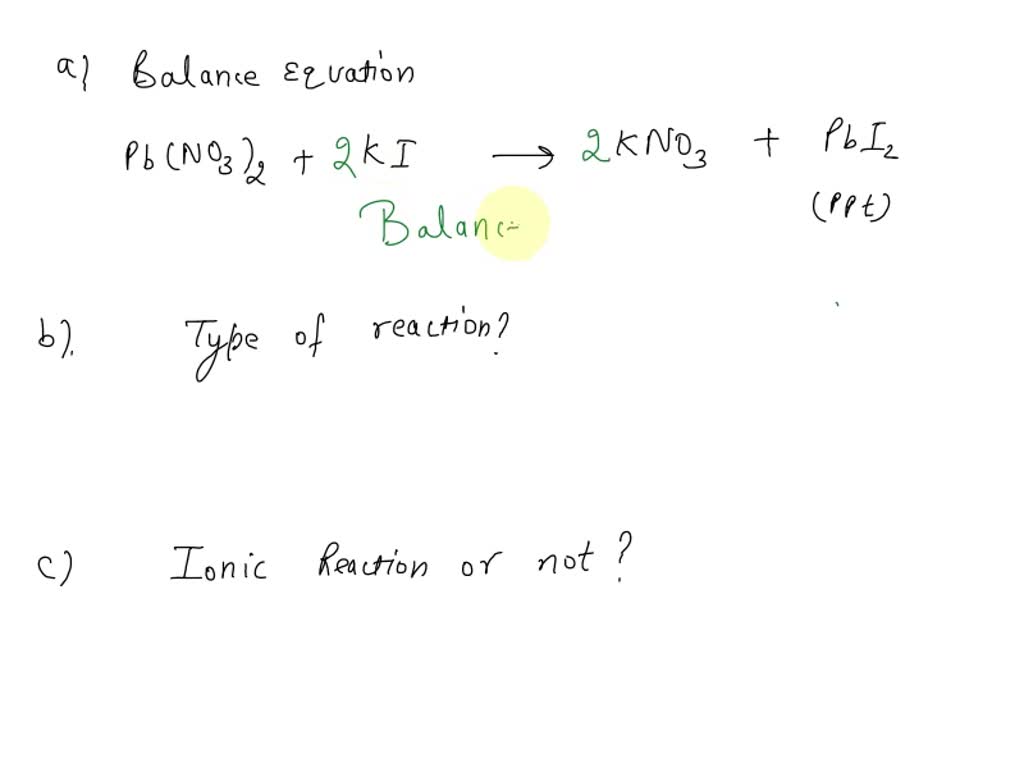 a) Balance Equation
Pb(NO₃)₂ + 2KI → 2KNO₃ + PbI₂
(PPt)
Balanc
b). Type of reaction?
c) Ionic Reaction or not?